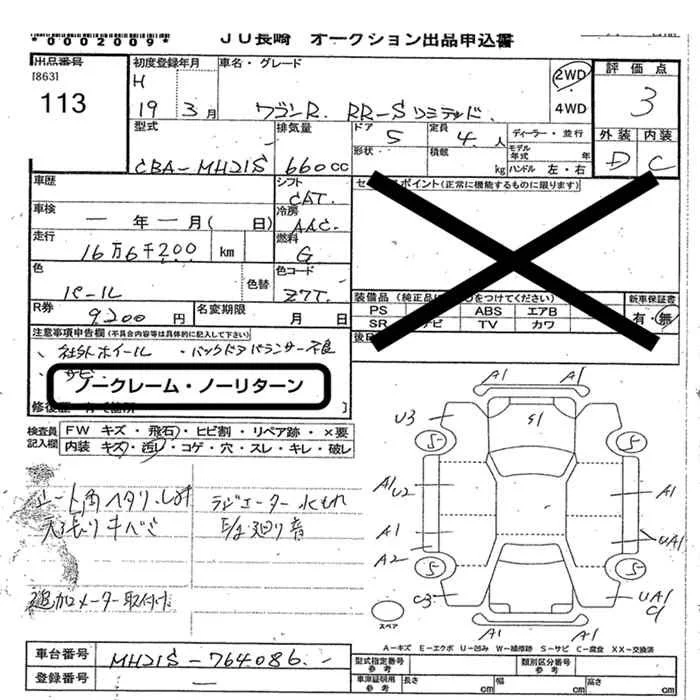 *0002009* JU長崎 オークション出品申込書
出品番号 初度登録年月 車名・グレード 評価点
[863] H 2WD
113 19 3月 ワゴンR RR-Sリミテッド 4WD 3
型式 排気量 ドア 5 定員 4人 ディーラー・並行 外装 内装
形状 積載 kg モデル年式 年 D C
CBA-MH21S 660cc ハンドル 左・右
車歴 シフト CAT.
車検 ー年ー月( 日) 冷房 AAC.
走行 16万6千200 km 燃料 G
色 パール 色替 色コード Z7T.
R券 9200円 名変期限 月 日
装備品 新車保証書
PS ABS エアB 有・無
SR TV カワ
注意事項申告欄(不具合内容等は具体的に記入して下さい)
社外ホイール ・バックドアバランサー不良
サビ
ノークレーム・ノーリターン
検査員記入欄 FW キズ・飛石・ヒビ割・リペア跡・×要
内装 キズ・汚レ・コゲ・穴・スレ・キレ・破レ
シート角ヘタリ ラジエーター水もれ
追加メーター取付け
A1 A1
U3 S1
S S
A1 U2 A1
A1 UA1
A2
S S
C3 UA1
C1
スペア A1 A1
A-キズ E-エクボ U-凹み W-補修跡 S-サビ C-腐食 XX-交換済
車台番号 MH21S-764086 型式指定番号 参考 類別区分番号 参考
登録番号 ー 車庫証明用 参考 長さ cm 幅 cm 高さ cm